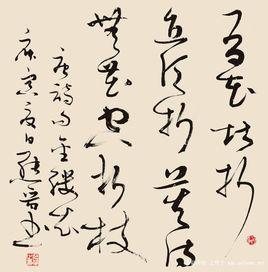 有花堪折
直須折莫待
無花空折枝
唐詩句金縷衣
庚寅夏日書